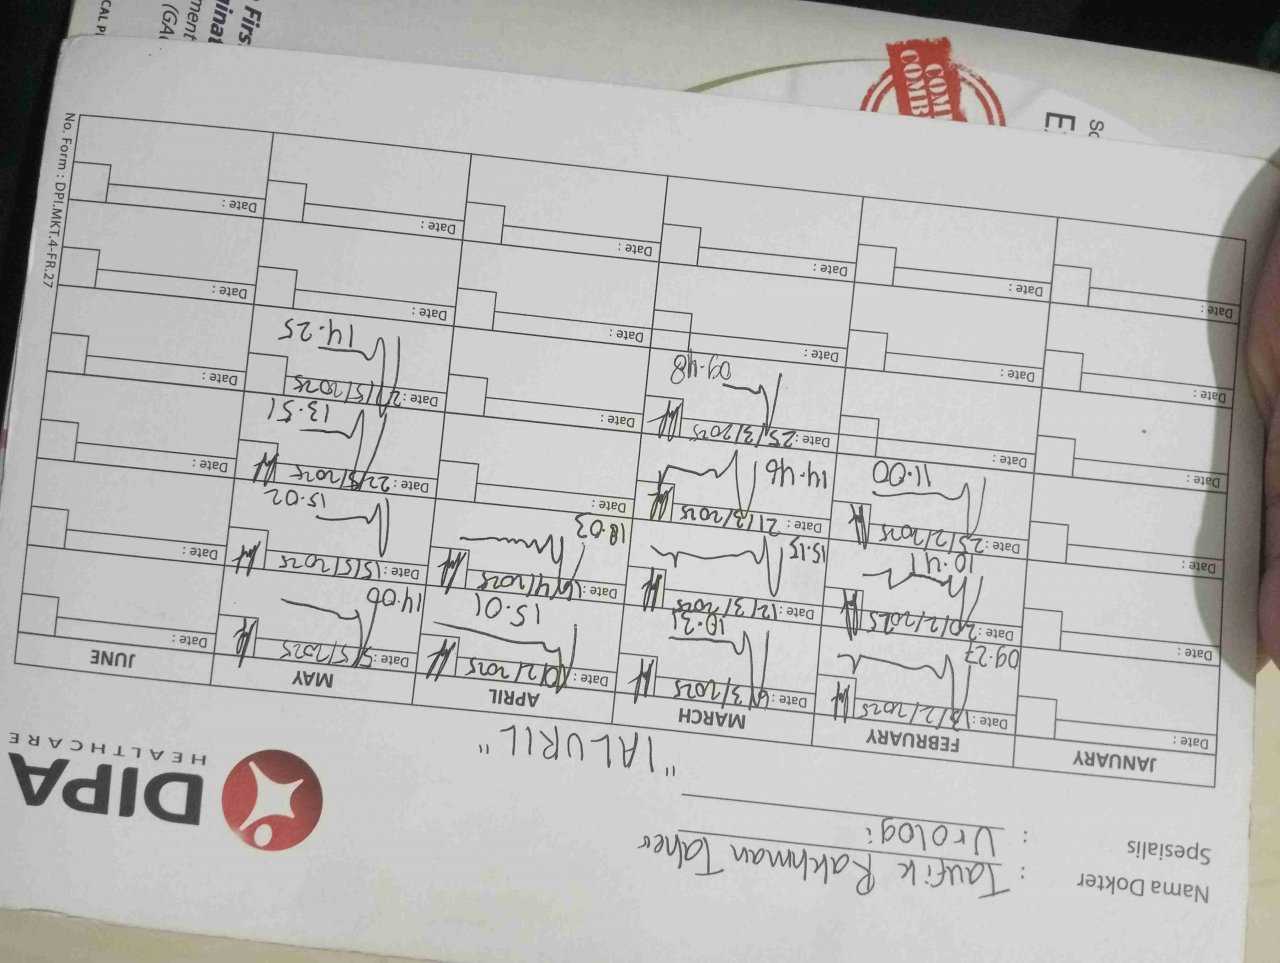 Nama Dokter : Taufik Rakhman Taher
Spesialis : Urologi
DIPA
HEALTHCARE
"IALURIL"
JANUARY FEBRUARY MARCH APRIL MAY JUNE
Date : Date : 13/2/2025 Date : 6/3/2025 Date : 10/2/2025 Date : 5/5/2025 Date :
09.27 10.31 15.01 14.00
Date : Date : 20/2/2025 Date : 12/3/2025 Date : 16/4/2025 Date : 15/5/2025 Date :
10.41 15.15 18.03 15.02
Date : Date : 25/2/2025 Date : 21/3/2025 Date : Date : 22/5/2025 Date :
11.00 14.46 13.51
Date : Date : Date : 25/3/2025 Date : Date : 2 /5/2025 Date :
09.48 14.25
Date : Date : Date : Date : Date : Date :
Date : Date : Date : Date : Date : Date :
No. Form : DPI.MKT.4-FR.27